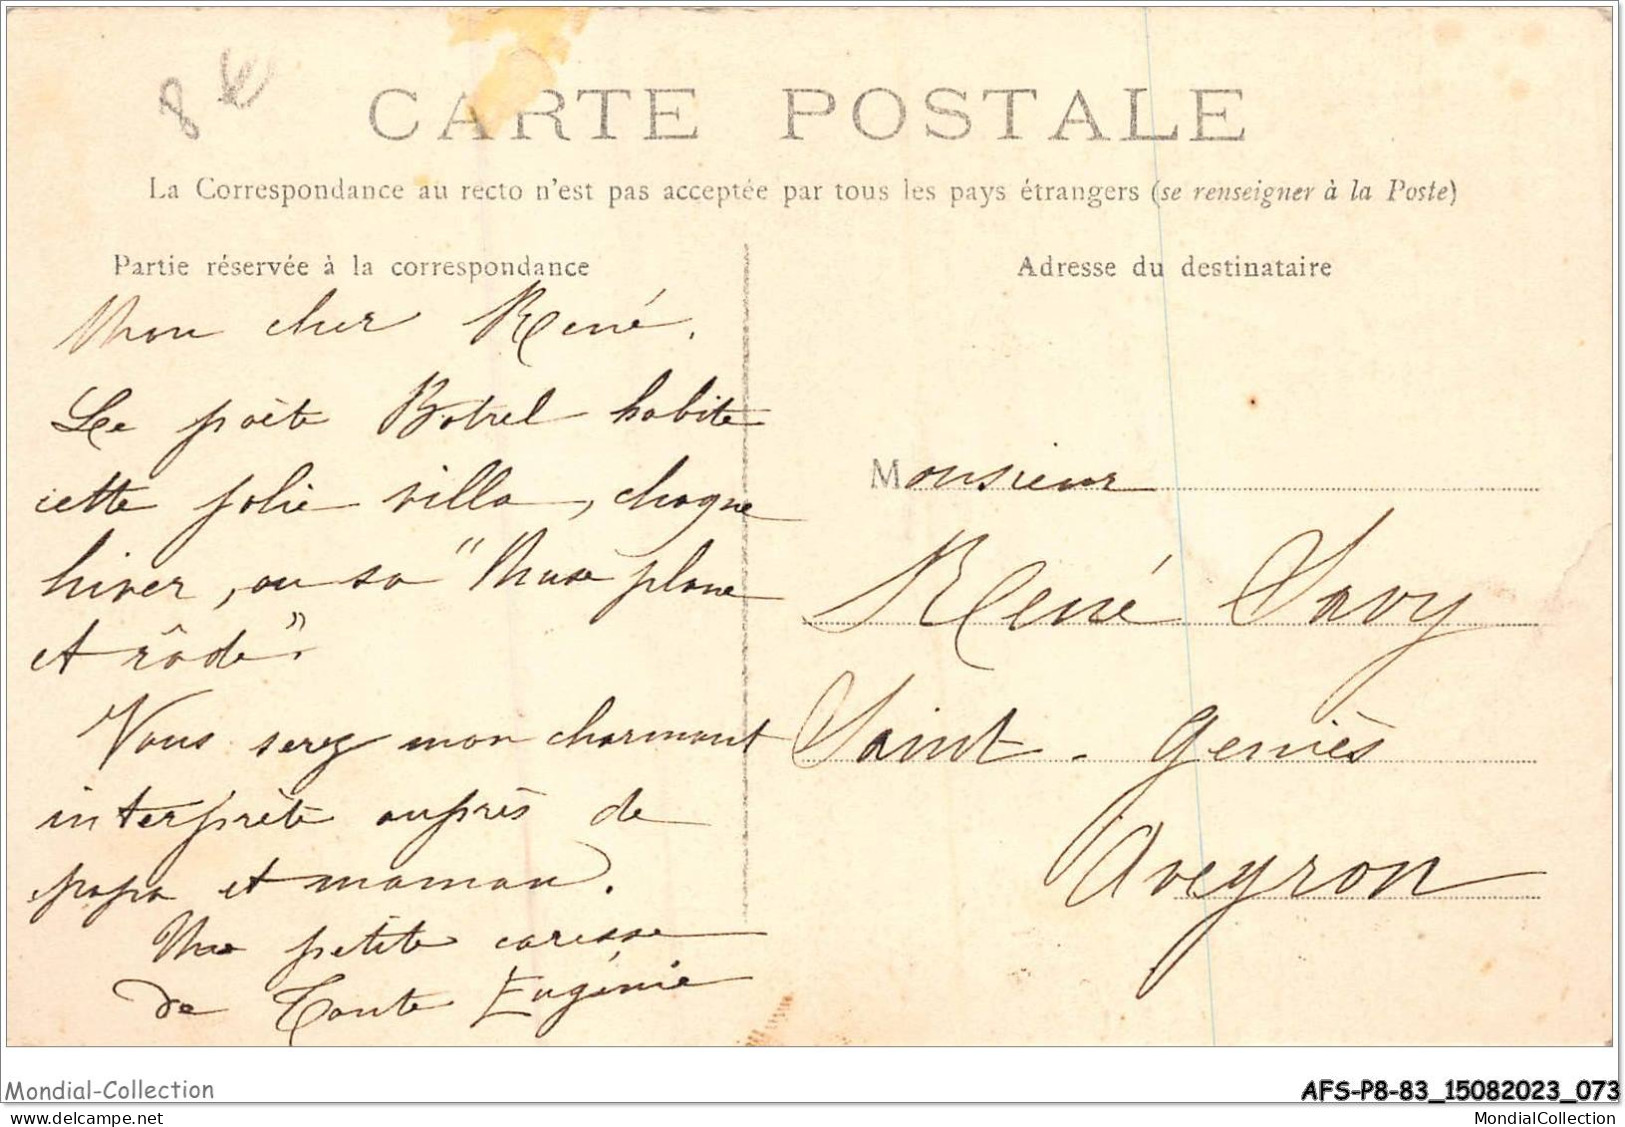 8 €
CARTE POSTALE
La Correspondance au recto n'est pas acceptée par tous les pays étrangers (se renseigner à la Poste)
Partie réservée à la correspondance
Mon cher René,
Le poète Botrel habite
cette jolie villa, chaque
hiver, ou sa "Muse plane
et rôde".
Vous serez mon charmant
interprète auprès de
papa et maman.
Une petite caresse
de Tante Eugénie
Adresse du destinataire
Monsieur
René Savy
Saint-Geniès
Aveyron
Mondial-Collection
AFS-P8-83_15082023_073
www.delcampe.net
MondialCollection